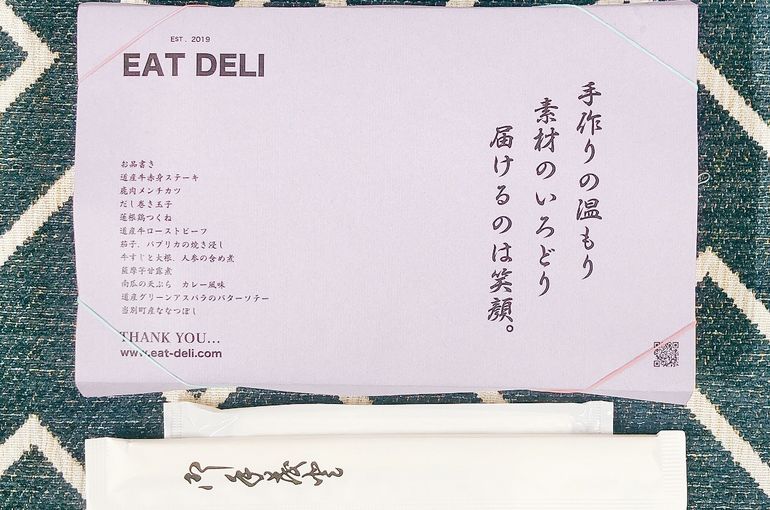 EST. 2019
EAT DELI
手作りの温もり
素材のいろどり
届けるのは笑顔。
お品書き
道産牛赤身ステーキ
鹿肉メンチカツ
だし巻き玉子
蓮根鶏つくね
道産牛ローストビーフ
茄子、パプリカの焼き浸し
牛すじと大根、人参の含め煮
薩摩芋甘露煮
南瓜の天ぷら カレー風味
道産グリーンアスパラのバターソテー
当別町産ななつぼし
THANK YOU...
www.eat-deli.com